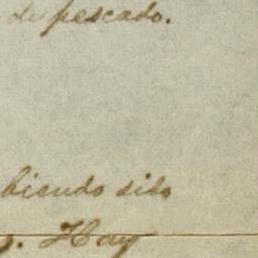 de pescado.
biendo sido
o. Hay